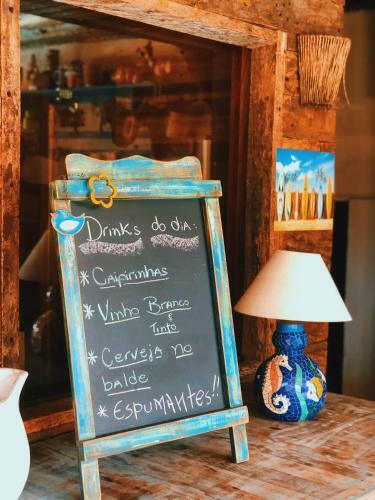 Drinks do dia:
* Caipirinhas
* Vinho Branco
&
Tinto
* Cerveja no
balde
* Espumantes!!